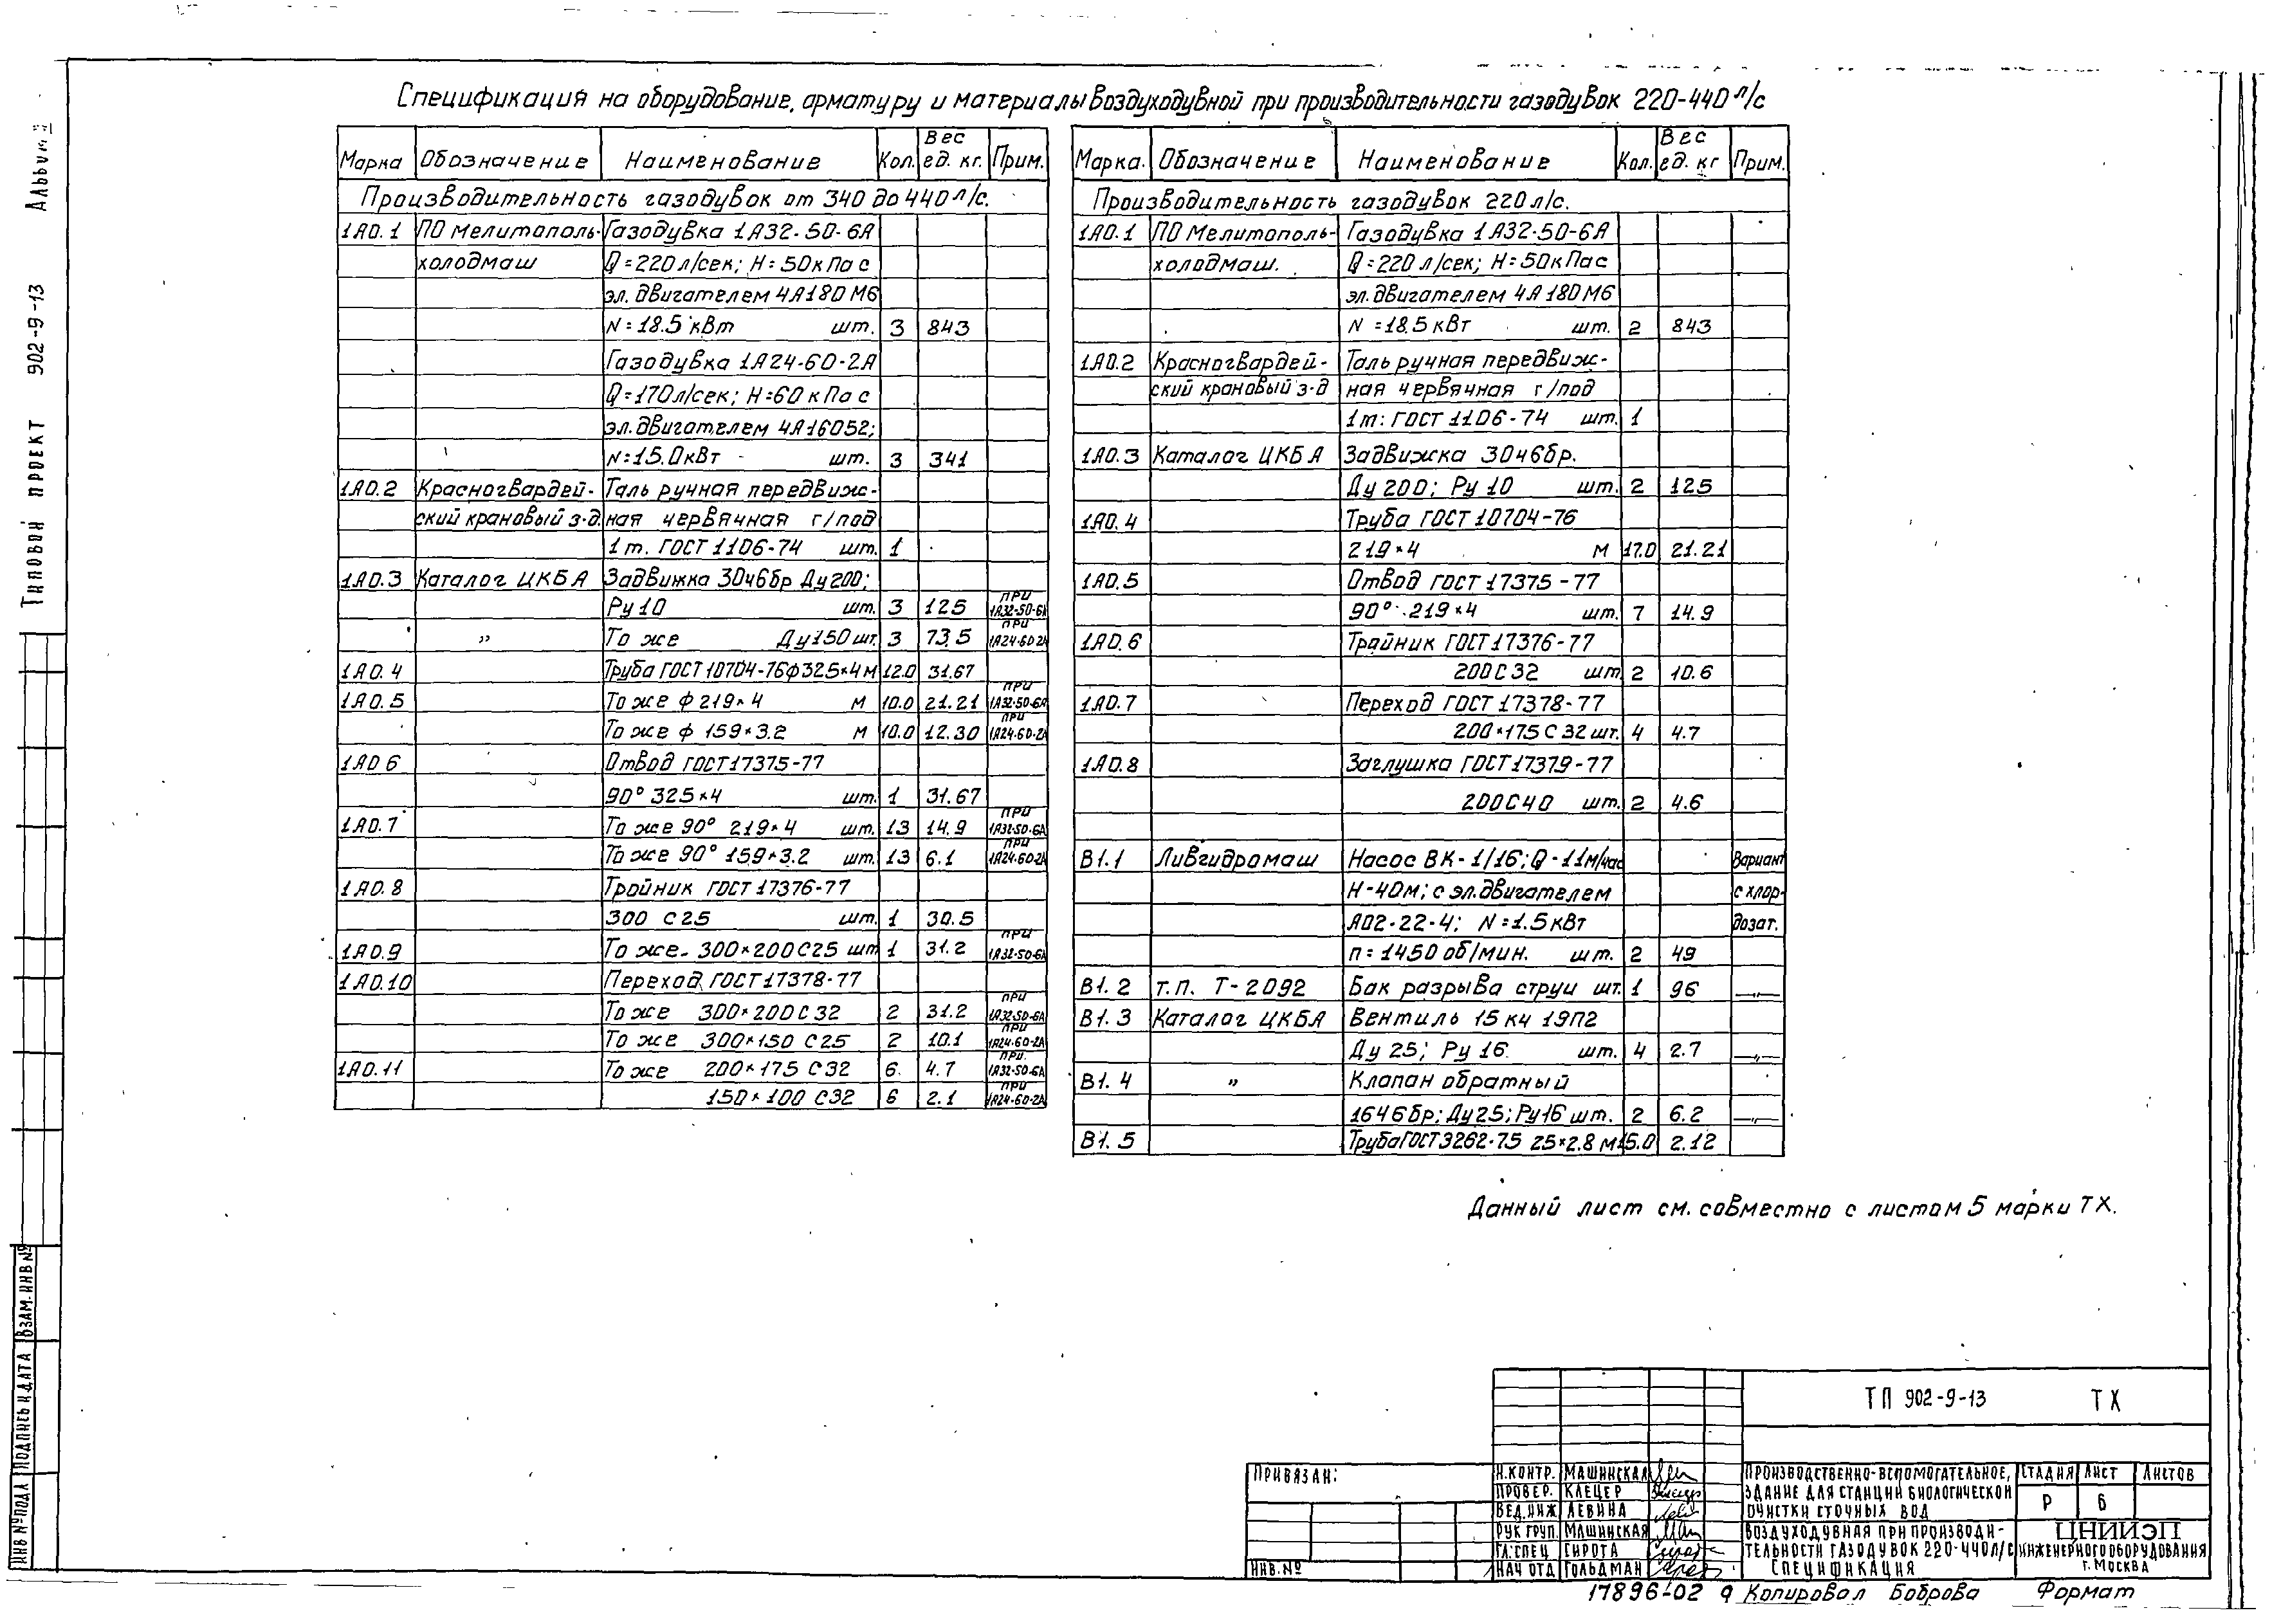 Альбом
Типовой проект 902-9-13
Спецификация на оборудование, арматуру и материалы воздуходувной при производительности газодувок 220-440 л/с
Марка Обозначение Наименование Кол. Вес ед. кг. Прим.
Производительность газодувок от 340 до 440 л/с.
1А0.1 ПО Мелитополь- Газодувка 1А32-50-6А
холодмаш Q=220л/сек; H=50кПа с
эл. двигателем 4А180М6
N=18.5 кВт шт. 3 843
Газодувка 1А24-60-2А
Q=170л/сек; H=60кПа с
эл. двигателем 4А160S2;
N=15.0кВт шт. 3 341
1А0.2 Красногвардей- Таль ручная передвиж-
ский крановый з-д. ная червячная г/под
1т. ГОСТ 1106-74 шт. 1
1А0.3 Каталог ЦКБА Задвижка 30ч6бр Ду200;
Ру10 шт. 3 125 при 1А32-50-6А
" То же Ду150 шт. 3 73.5 при 1А24-60-2А
1А0.4 Труба ГОСТ 10704-76 ф325×4 м 12.0 31.67
1А0.5 То же ф219×4 м 10.0 21.21 при 1А32-50-6А
То же ф 159×3.2 м 10.0 12.30 при 1А24-60-2А
1А0 6 Отвод ГОСТ17375-77
90° 325×4 шт. 1 31.67
1А0.7 То же 90° 219×4 шт. 13 14.9 при 1А32-50-6А
То же 90° 159×3.2 шт. 13 6.1 при 1А24-60-2А
1А0.8 Тройник ГОСТ 17376-77
300 С25 шт. 1 30.5
1А0.9 То же. 300×200С25 шт 1 31.2 при 1А32-50-6А
1А0.10 Переход ГОСТ17378-77
То же 300×200С32 2 31.2 при 1А32-50-6А
То же 300×150 С25 2 10.1 при 1А24-60-2А
1А0.11 То же 200×175 С32 6. 4.7 при. 1А32-50-6А
150×100 С32 6 2.1 при 1А24-60-2А
Марка. Обозначение Наименование Кол. Вес ед. кг Прим.
Производительность газодувок 220л/с.
1А0.1 ПО Мелитополь- Газодувка 1А32-50-6А
холодмаш. Q=220 л/сек; H=50кПа с
эл. двигателем 4А180М6
N=18.5кВт шт. 2 843
1А0.2 Красногвардей- Таль ручная передвиж-
ский крановый з-д ная червячная г/под
1т: ГОСТ 1106-74 шт. 1
1А0.3 Каталог ЦКБА Задвижка 30ч6бр.
Ду 200; Ру 10 шт. 2 125
1А0.4 Труба ГОСТ 10704-76
219×4 м 17.0 21.21
1А0.5 Отвод ГОСТ 17375-77
90° 219×4 шт. 7 14.9
1А0.6 Тройник ГОСТ17376-77
200С32 шт. 2 10.6
1А0.7 Переход ГОСТ 17378-77
200×175 С 32 шт. 4 4.7
1А0.8 Заглушка ГОСТ17379-77
200С40 шт. 2 4.6
В1.1 Ливгидромаш Насос ВК-1/16; Q-11м/час Вариант
Н-40м; с эл.двигателем с хлор-
А02-22-4; N=1.5кВт дозат.
п=1450 об/мин. шт. 2 49
В1.2 т.п. Т-2092 Бак разрыва струи шт. 1 96 —"—
В1.3 Каталог ЦКБА Вентиль 15кч 19П2
Ду 25; Ру 16. шт. 4 2.7 —"—
В1.4 " Клапан обратный
16ч6бр; Ду25; Ру16 шт. 2 6.2 —"—
В1.5 Труба ГОСТ3262-75 25×2.8 м 15.0 2.12
Данный лист см. совместно с листом 5 марки ТХ.
Инв №подл Подпись и дата Взам. инв №
Привязан:
Инв.№
Н.контр. Машинская
Провер. Клецер
Вед.инж Левина
Рук груп. Машинская
Гл.спец Сирота
Нач отд Гольдман
ТП 902-9-13 ТХ
Производственно-вспомогательное, здание для станций биологической очистки сточных вод
Стадия Лист Листов
Р 6
Воздуходувная при производи-
тельности газодувок 220-440л/с
Спецификация
ЦНИИЭП
инженерного оборудования
г. Москва
17896-02 9 Копировал Боброва Формат